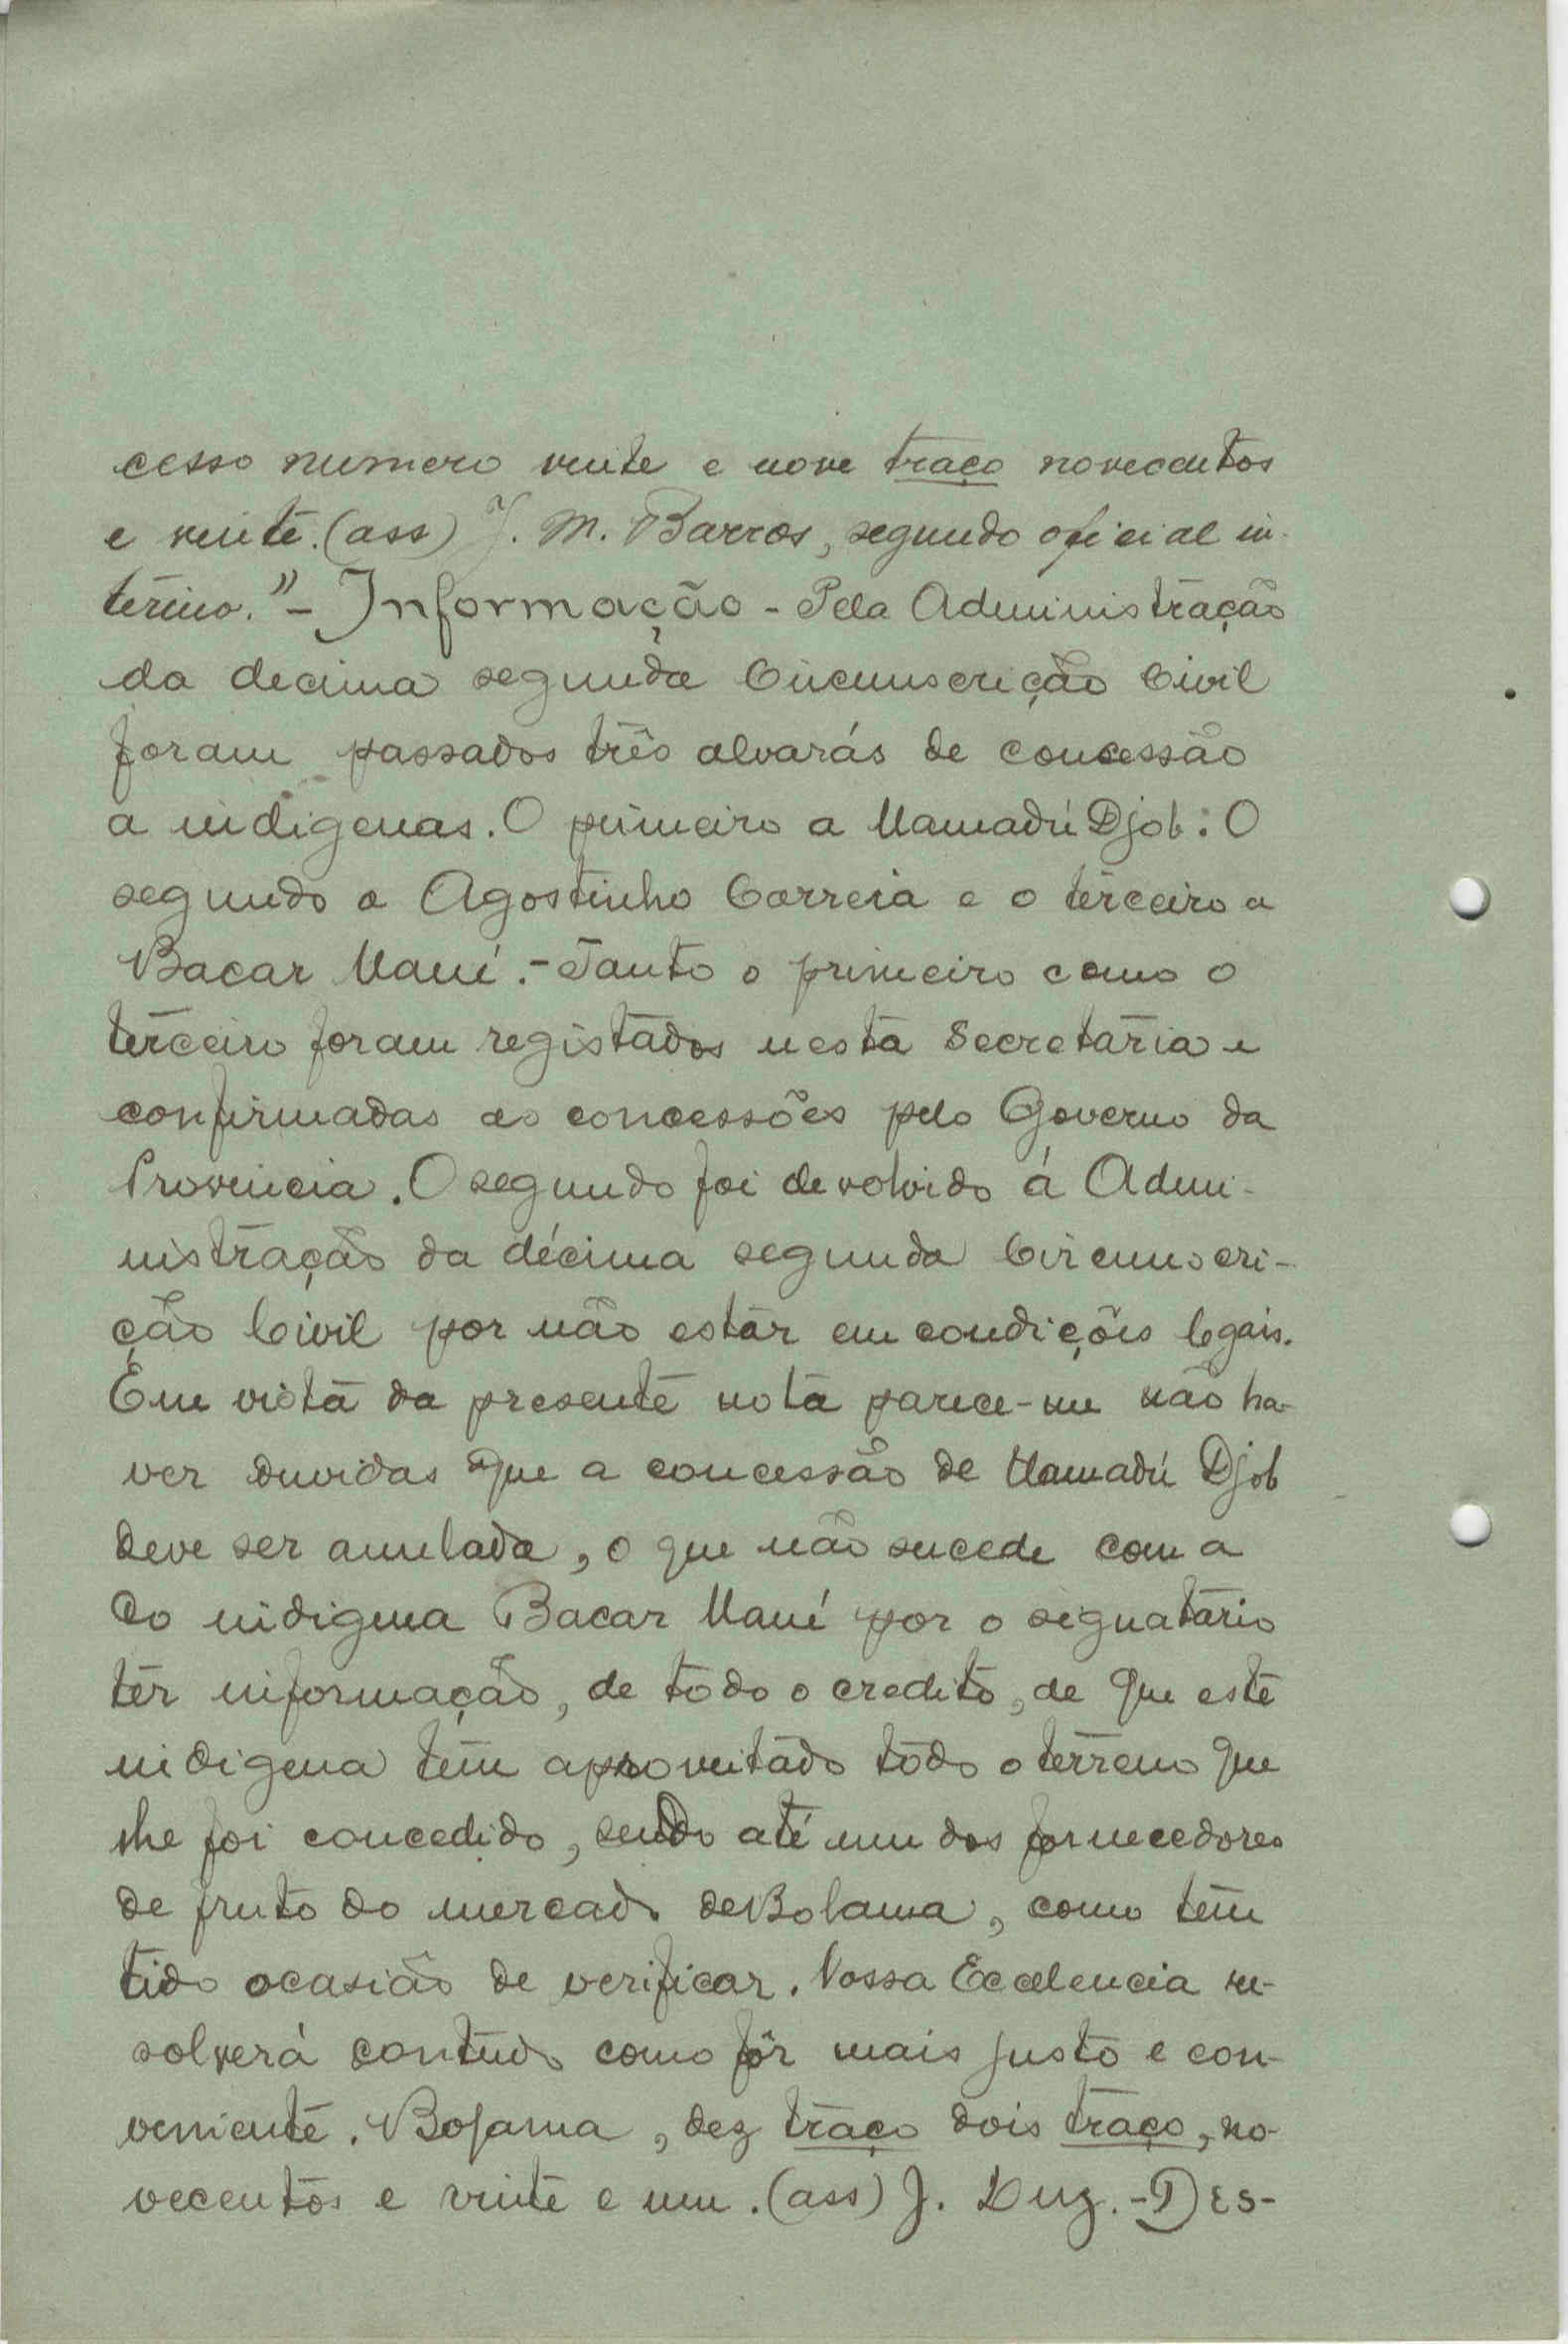 cesso numero vinte e nove traço novecentos
e vinte. (ass) J. M. Barros, segundo oficial in-
terino." - Informação - Pela Administração
da decima segunda Circunscrição Civil
foram passados três alvarás de concessão
a indigenas. O primeiro a Mamadú Djob: O
segundo a Agostinho Correia e o terceiro a
Bacar Mané. - Tanto o primeiro como o
terceiro foram registados nesta Secretaria e
confirmadas as concessões pelo Governo da
Provincia. O segundo foi devolvido á Admi-
nistração da décima segunda Circunscri-
ção Civil por não estar em condições legais.
Em vista da presente nota parece-me não ha-
ver duvidas que a concessão de Mamadú Djob
deve ser anulada, o que não sucede com a
do indigena Bacar Mané por o signatario
ter informação, de todo o credito, de que este
indigena têm aproveitado todo o terreno que
lhe foi concedido, sendo até um dos fornecedores
de fruto do mercado de Bolama, como têm
tido ocasião de verificar. Vossa Excelencia re-
solverá contudo como fôr mais justo e con-
veniente. Bolama, dez traço dois traço, no-
vecentos e vinte e um. (ass) J. Luz. - Des-